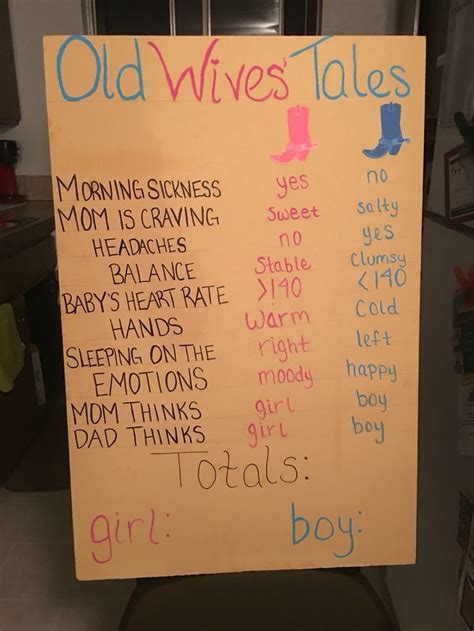 Old Wives' Tales
MORNING SICKNESS yes no
MOM IS CRAVING sweet salty
HEADACHES no yes
BALANCE Stable Clumsy
BABY'S HEART RATE >140 <140
HANDS Warm Cold
SLEEPING ON THE right left
EMOTIONS moody happy
MOM THINKS girl boy
DAD THINKS girl boy
Totals:
girl: boy: